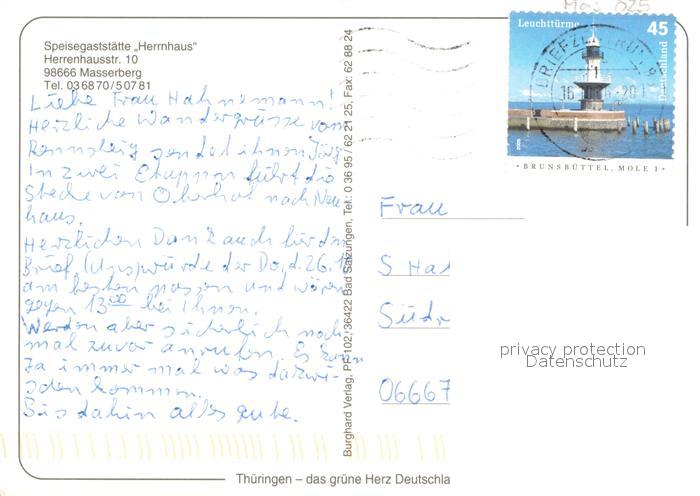 Speisegaststätte „Herrnhaus"
Herrenhausstr. 10
98666 Masserberg
Tel. 036870/50781
Liebe Frau Hahnemann!
Herzliche Wandergrüsse vom
Rennsteig sendet ihnen Jörg
In zwei Etappen führt die
Strecke von Oberhof nach Neu
haus.
Herzlichen Dank auch für den
Brief. (Uns) würde der Do, d. 26.
am besten passen und wären
gegen 13 00 bei Ihnen.
Werden aber sicherlich noch-
mal zuvor anrufen. Es kann
Ja immer mal was dazwi-
schen kommen.
Bis dahin alles gute.
Burghard Verlag, PF 102, 36422 Bad Salzungen, Tel.: 0 36 95 / 62 21 25, Fax: 62 88 24
Leuchttürme
45
Deutschland
BRIEFZENTRUM
BRUNSBÜTTEL, MOLE 1
Frau
S Hah
Südr
06667
privacy protection
Datenschutz
Thüringen – das grüne Herz Deutschla